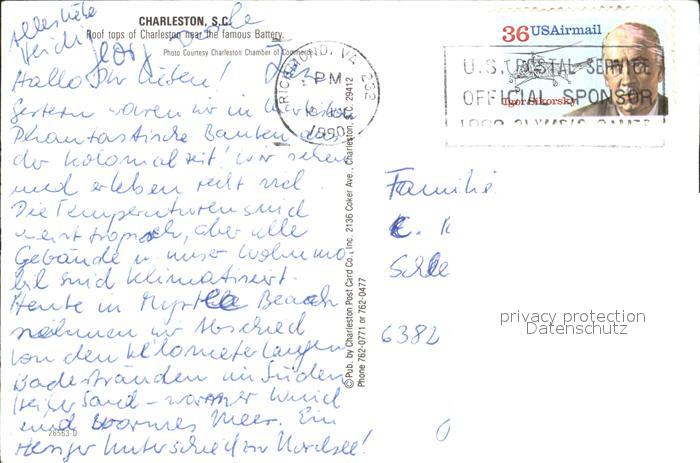 CHARLESTON, S.C.
Roof tops of Charleston near the famous Battery.
Photo Courtesy Charleston Chamber of Commerce
Hallo Ihr Lieben!
Gestern waren wir in
Phantastische Bauten aus
der Kolonialzeit! Wir sehen
und erleben recht viel.
Die Temperaturen sind
meist tropisch, aber alle
Gebäude u. unser Wohnmo-
bil sind klimatisiert.
Heute in Myrtle Beach
nehmen wir Abschied
von den kilometerlangen
Badestränden im Süden
heißer Sand - warmer Wind
und warmes Meer. Ein
riesiger Unterschied zur Nordsee!
26563-D
© Pub. by Charleston Post Card Co., Inc., 2136 Coker Ave., Charleston, S.C. 29412
Phone 762-0771 or 762-0477
RICHMOND, VA 232
PM
1990
36 USAirmail
Igor Sikorsky
U.S. POSTAL SERVICE
OFFICIAL SPONSOR
Familie
6382
privacy protection
Datenschutz